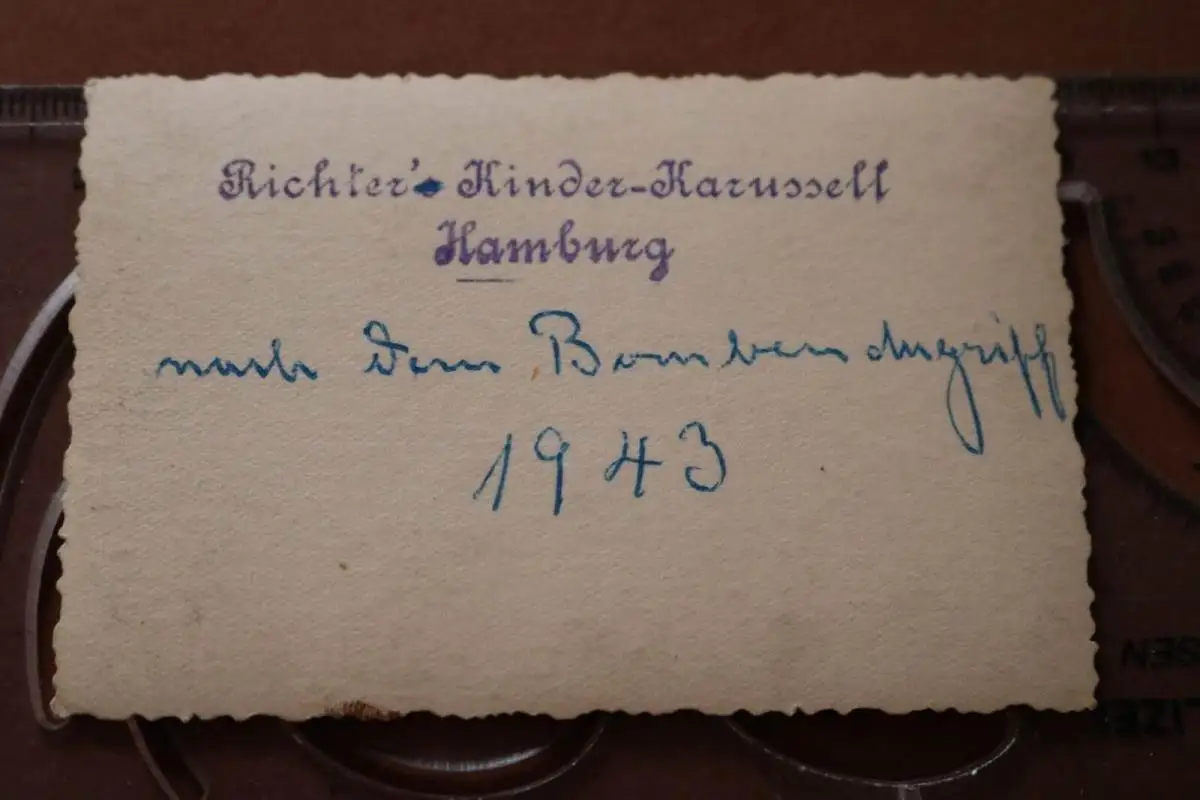 Richter's Kinder-Karussell
Hamburg
nach dem Bombenangriff
1943